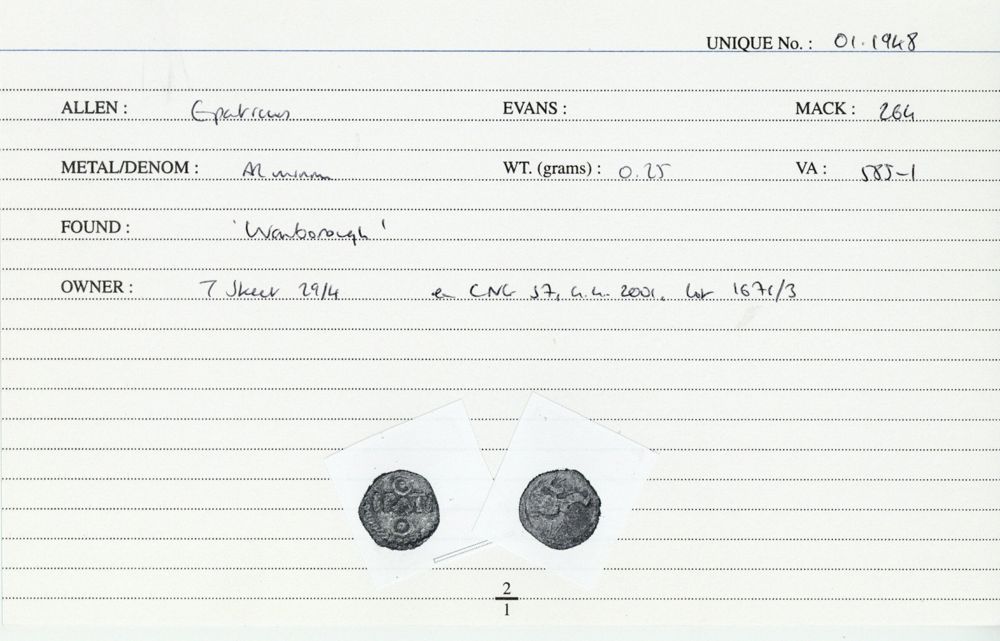 UNIQUE No. : 01.1948
ALLEN : Epaticcus EVANS : MACK : 264
METAL/DENOM : AR minim WT. (grams) : 0.25 VA : 585-1
FOUND : 'Wanborough'
OWNER : T Skeet 29/4 ex CNG 57, 4.4.2001, lot 1671/3
2
1